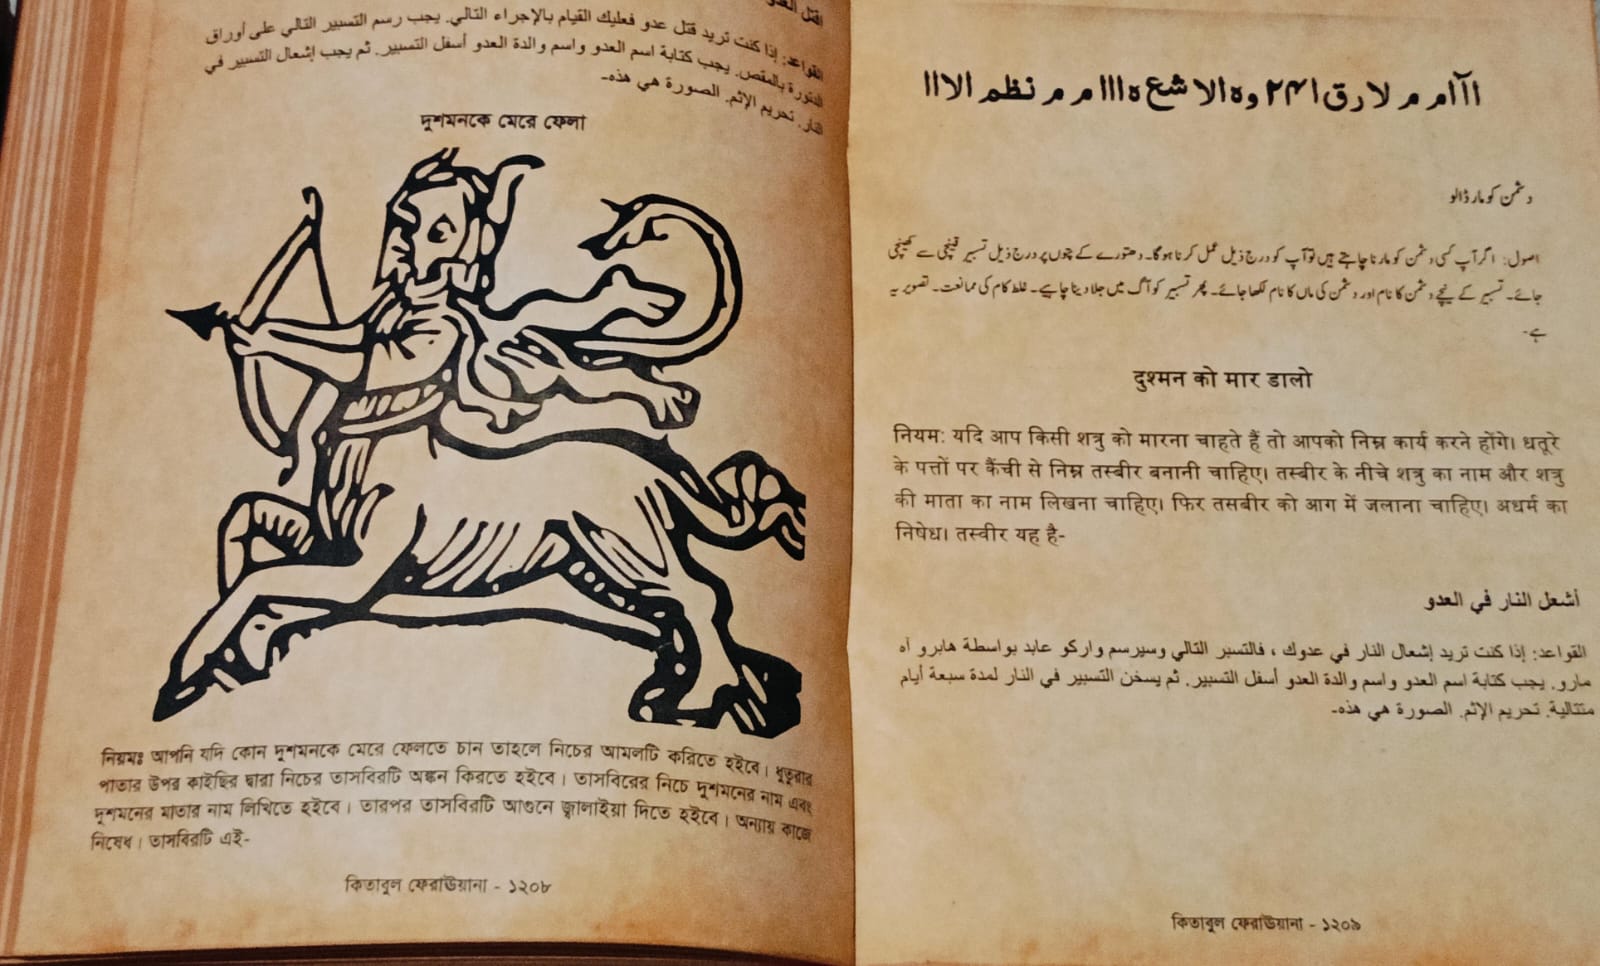 القتل العدو
القواعد: إذا كنت تريد قتل عدو فعليك القيام بالإجراء التالي. يجب رسم التسبير التالي على أوراق
الدتورة بالمقص. يجب كتابة اسم العدو واسم والدة العدو أسفل التسبير. ثم يجب إشعال التسبير في
النار. تحريم الإثم. الصورة هي هذه-
দুশমনকে মেরে ফেলা
নিয়মঃ আপনি যদি কোন দুশমনকে মেরে ফেলতে চান তাহলে নিচের আমলটি করিতে হইবে। ধুতুরার
পাতার উপর কাইছির দ্বারা নিচের তাসবিরটি অঙ্কন কিরতে হইবে। তাসবিরের নিচে দুশমনের নাম এবং
দুশমনের মাতার নাম লিখিতে হইবে। তারপর তাসবিরটি আগুনে জ্বালাইয়া দিতে হইবে। অন্যায় কাজে
নিষেধ। তাসবিরটি এই-
কিতাবুল ফেরাউয়ানা - ১২০৮
دشمن کو مار ڈالو
اصول: اگر آپ کسی دشمن کو مارنا چاہتے ہیں تو آپ کو درج ذیل عمل کرنا ہوگا۔ دھتورے کے پتوں پر درج ذیل تسبیر قینچی سے کھینچی
جائے۔ تسبیر کے نیچے دشمن کا نام اور دشمن کی ماں کا نام لکھا جائے۔ پھر تسبیر کو آگ میں جلا دینا چاہیے۔ غلط کام کی ممانعت۔ تصویر یہ
ہے-
दुश्मन को मार डालो
नियम: यदि आप किसी शत्रु को मारना चाहते हैं तो आपको निम्न कार्य करने होंगे। धतूरे
के पत्तों पर कैंची से निम्न तस्बीर बनानी चाहिए। तस्बीर के नीचे शत्रु का नाम और शत्रु
की माता का नाम लिखना चाहिए। फिर तसबीर को आग में जलाना चाहिए। अधर्म का
निषेध। तस्वीर यह है-
أشعل النار في العدو
القواعد: إذا كنت تريد إشعال النار في عدوك ، فالتسبر التالي وسيرسم واركو عابد بواسطة هابرو آه
مارو. يجب كتابة اسم العدو واسم والدة العدو أسفل التسبير. ثم يسخن التسبير في النار لمدة سبعة أيام
متتالية. تحريم الإثم. الصورة هي هذه-
কিতাবুল ফেরাউয়ানা - ১২০৯